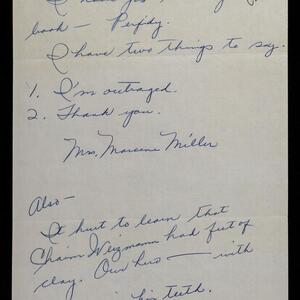 book — Perfidy.
I have two things to say.
1. I'm outraged.
2. Thank you.
Mrs. Marcene Miller
Also —
It hurt to learn that
Chaim Weizmann had feet of
clay. Our hero — with
his teeth.